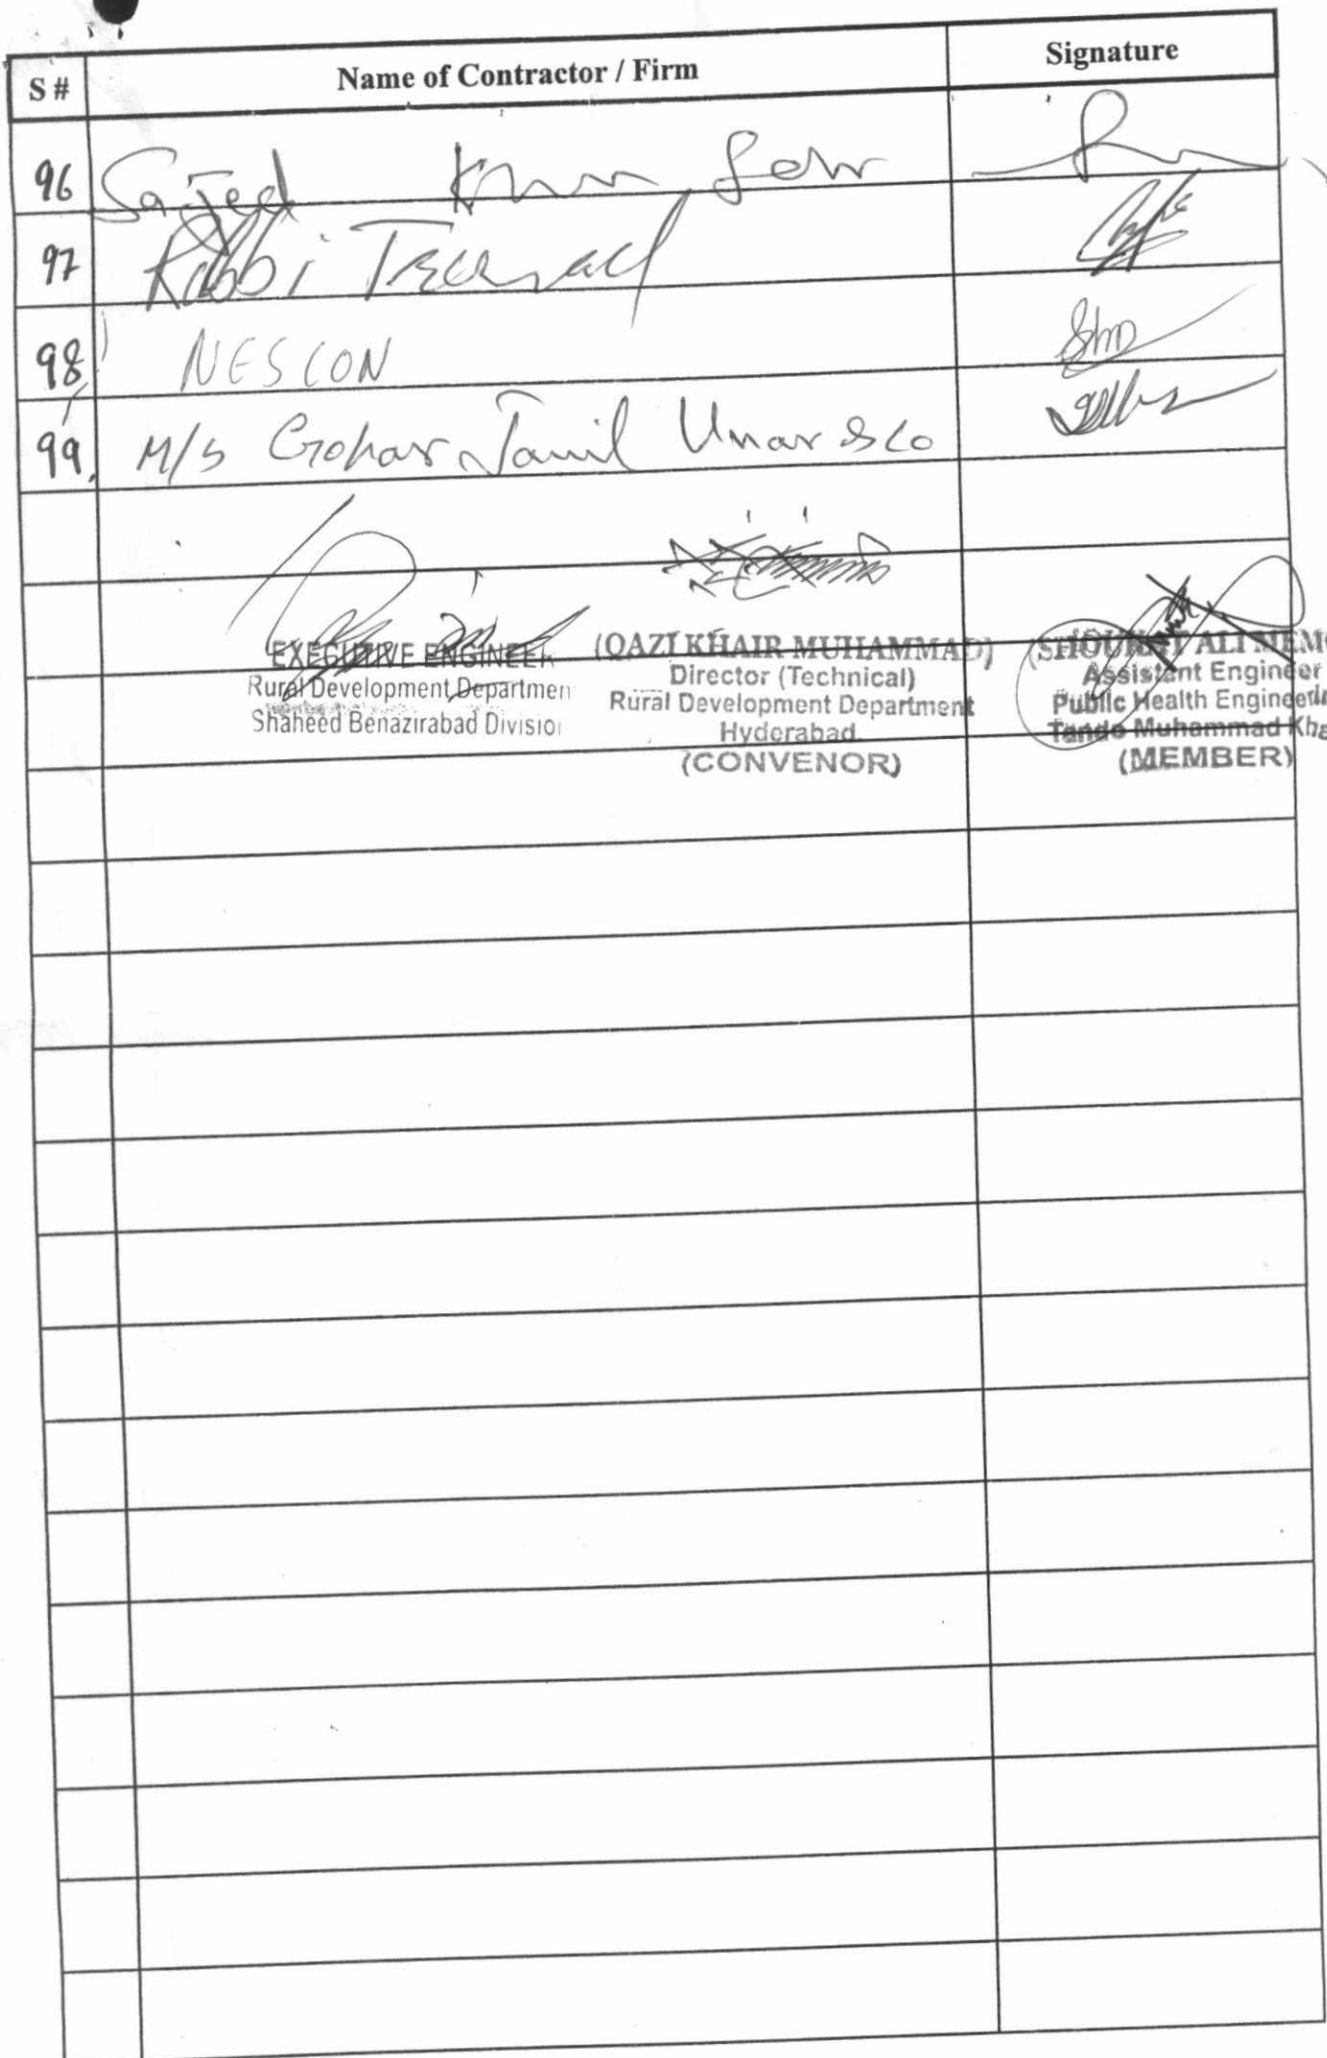 S # Name of Contractor / Firm Signature
96 Sajed Khan
97 Rabbi
98 NESCON
99. M/S Gohar Jamil Umar & Co
EXECUTIVE ENGINEER
Rural Development Departmen
Shaheed Benazirabad Divisio
(QAZI KHAIR MUHAMMAD)
Director (Technical)
Rural Development Department
Hyderabad
(CONVENOR)
(SHOUKAT ALI MEMO
Assistant Engineer
Public Health Engineerin
Tando Muhammad Kha
(MEMBER)